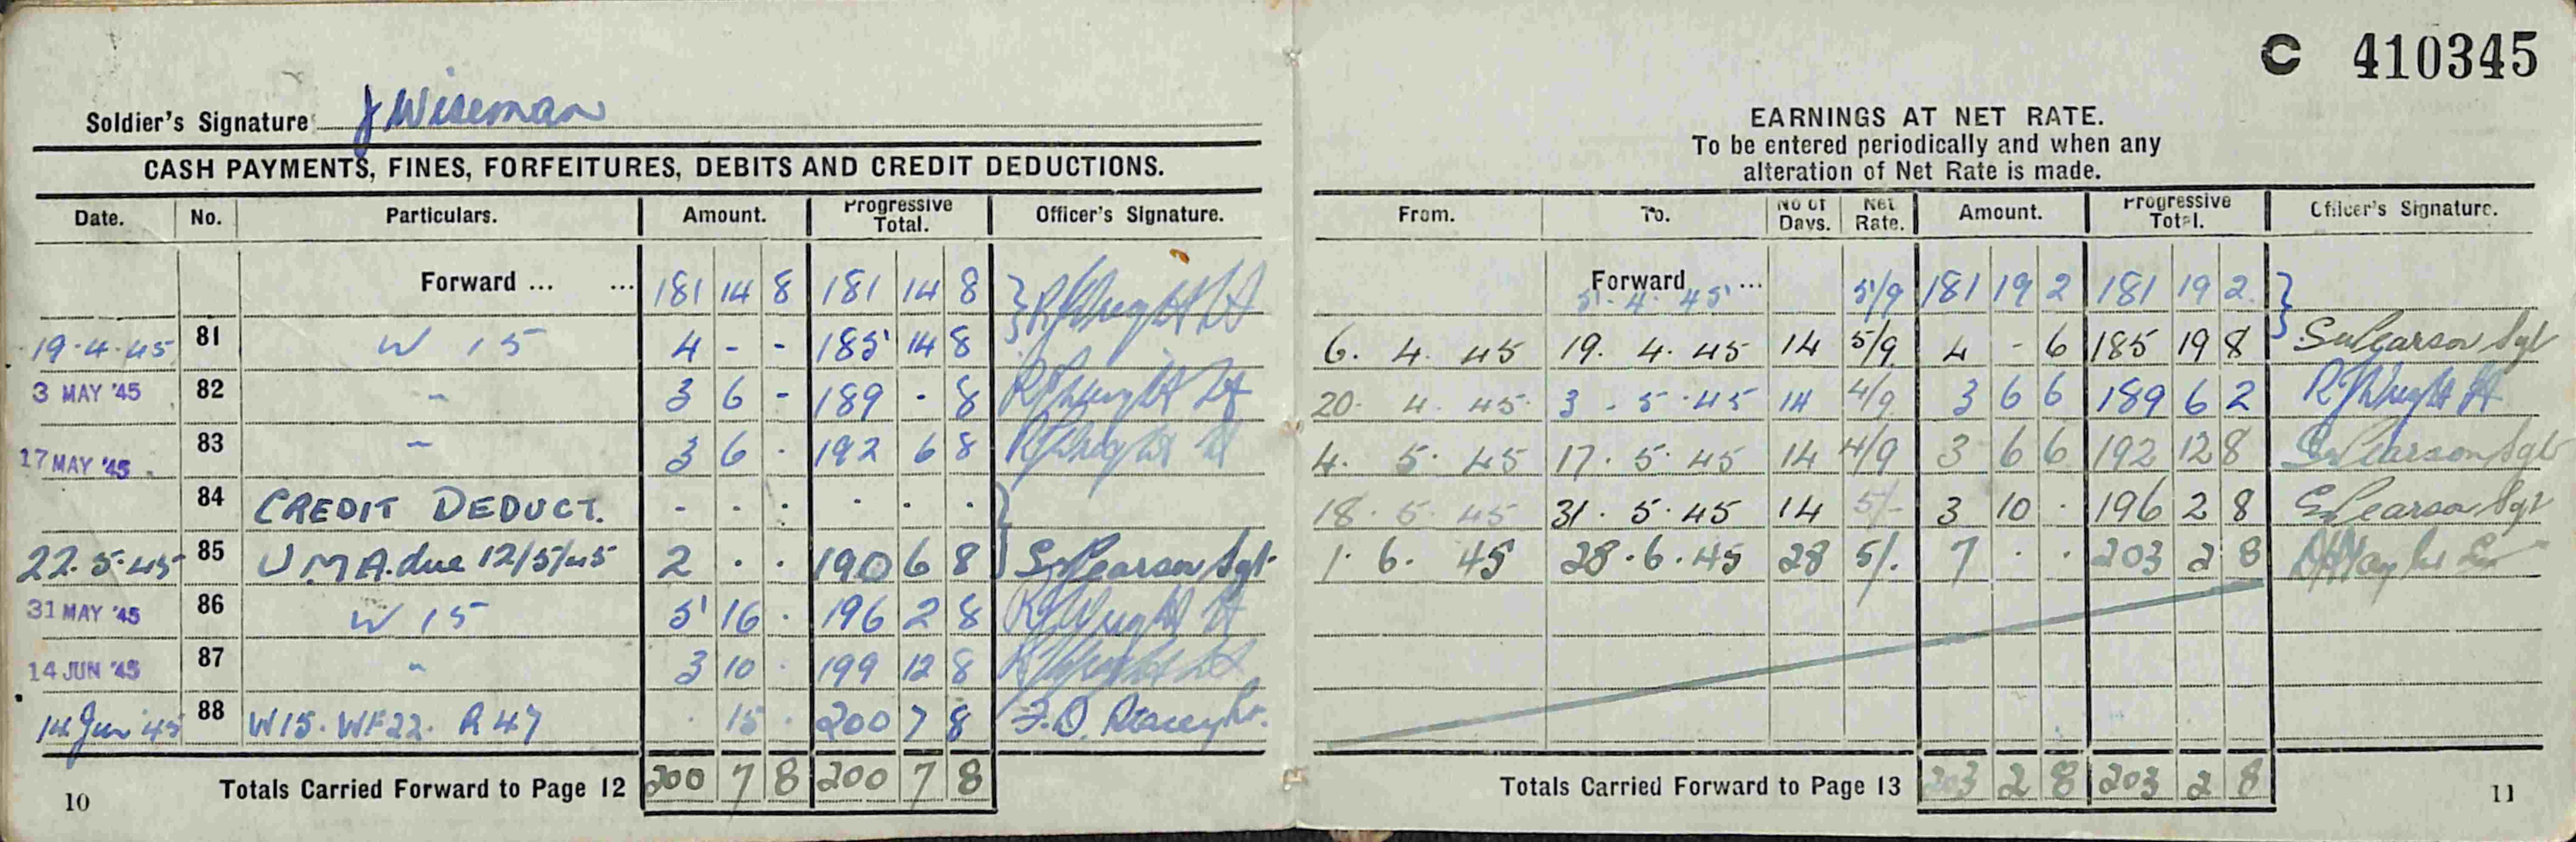 C 410345
Soldier's Signature J Wiseman
CASH PAYMENTS, FINES, FORFEITURES, DEBITS AND CREDIT DEDUCTIONS.
Date. No. Particulars. Amount. Progressive Total. Officer's Signature.
Forward ... ... 181 14 8 181 14 8 Lt
19.4.45 81 W 15 4 - - 185 14 8
3 MAY '45 82 " 3 6 - 189 - 8 R Wright Lt
17 MAY '45 83 " 3 6 . 192 6 8 R Wright Lt
84 CREDIT DEDUCT. - . . . . .
22.5.45 85 UMA. due 12/5/45 2 . . 190 6 8 Pearson Sgt
31 MAY '45 86 W 15 5 16 . 196 2 8 R Wright Lt
14 JUN '45 87 " 3 10 . 199 12 8 R Wright Lt
14 Jun '45 88 W15. WF22. R 47 . 15 . 200 7 8 F.D. Stacey Lt.
Totals Carried Forward to Page 12 200 7 8 200 7 8
10
EARNINGS AT NET RATE.
To be entered periodically and when any
alteration of Net Rate is made.
From. To. No of Days. Net Rate. Amount. Progressive Total. Officer's Signature.
Forward ... 5.4.45 5/9 181 19 2 181 19 2
6. 4. 45 19. 4. 45 14 5/9 4 - 6 185 19 8 Pearson Sgt
20. 4. 45 3. 5. 45 14 4/9 3 6 6 189 6 2 R Wright Lt
4. 5. 45 17. 5. 45 14 4/9 3 6 6 192 12 8 Pearson Sgt
18. 5. 45 31. 5. 45 14 5/- 3 10 . 196 2 8 Pearson Sgt
1. 6. 45 28. 6. 45 28 5/. 7 . . 203 2 8
Totals Carried Forward to Page 13 203 2 8 203 2 8
11